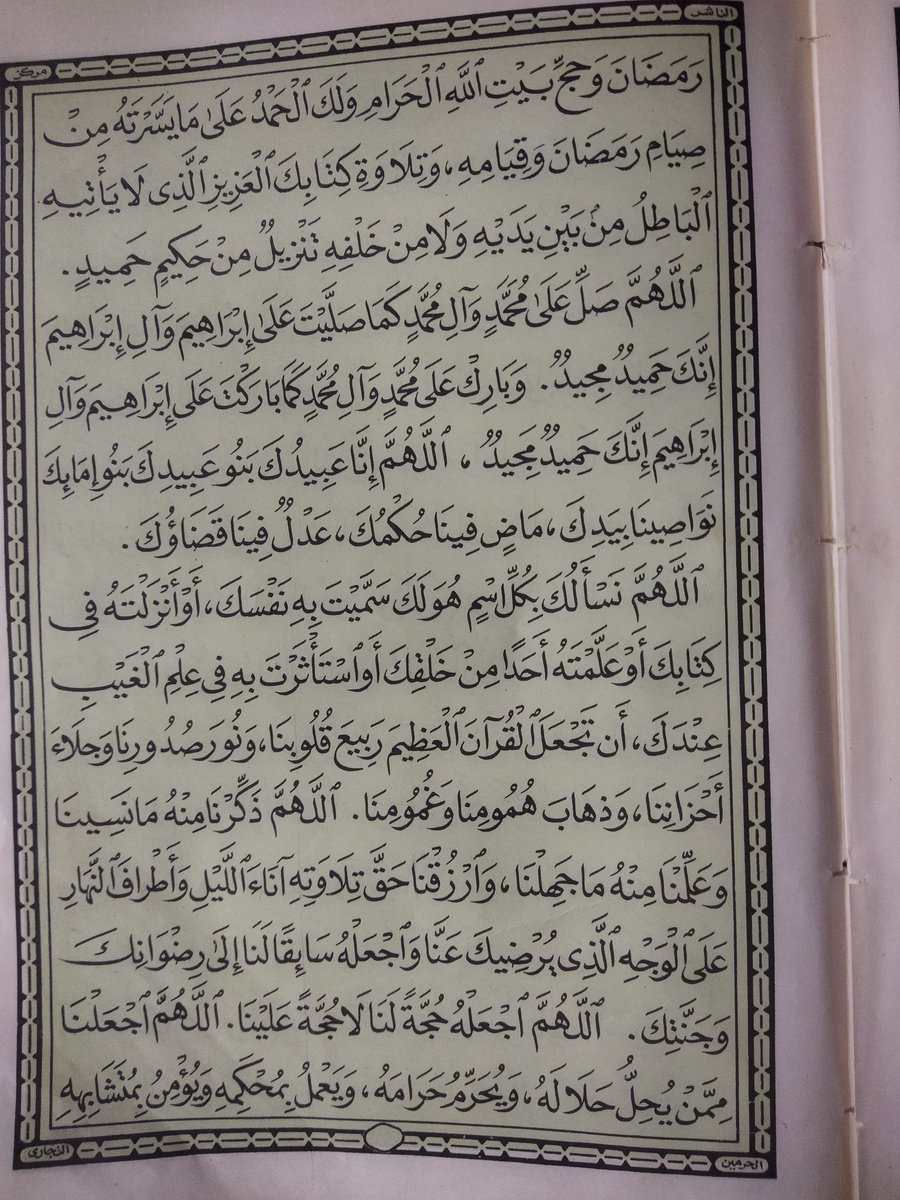 الناشر
مركز
رَمَضَانَ وَحَجِّ بَيْتِ ٱللَّهِ ٱلْحَرَامِ وَلَكَ ٱلْحَمْدُ عَلَىٰ مَا يَسَّرْتَهُ مِنْ
صِيَامِ رَمَضَانَ وَقِيَامِهِ ، وَتِلَاوَةِ كِتَابِكَ ٱلْعَزِيزِ ٱلَّذِى لَا يَأْتِيهِ
ٱلْبَاطِلُ مِنْ بَيْنِ يَدَيْهِ وَلَا مِنْ خَلْفِهِ تَنْزِيلٌ مِنْ حَكِيمٍ حَمِيدٍ .
ٱللَّهُمَّ صَلِّ عَلَىٰ مُحَمَّدٍ وَآلِ مُحَمَّدٍ كَمَا صَلَّيْتَ عَلَىٰ إِبْرَاهِيمَ وَآلِ إِبْرَاهِيمَ
إِنَّكَ حَمِيدٌ مَجِيدٌ . وَبَارِكْ عَلَىٰ مُحَمَّدٍ وَآلِ مُحَمَّدٍ كَمَا بَارَكْتَ عَلَى إِبْرَاهِيمَ وَآلِ
إِبْرَاهِيمَ إِنَّكَ حَمِيدٌ مَجِيدٌ ، ٱللَّهُمَّ إِنَّا عَبِيدُكَ بَنُو عَبِيدِكَ بَنُو إِمَائِكَ
نَوَاصِينَا بِيَدِكَ ، مَاضٍ فِينَا حُكْمُكَ ، عَدْلٌ فِينَا قَضَاؤُكَ .
ٱللَّهُمَّ نَسْأَلُكَ بِكُلِّ اسْمٍ هُوَ لَكَ سَمَّيْتَ بِهِ نَفْسَكَ ، أَوْ أَنْزَلْتَهُ فِى
كِتَابِكَ أَوْ عَلَّمْتَهُ أَحَدًا مِنْ خَلْقِكَ أَوِ ٱسْتَأْثَرْتَ بِهِ فِى عِلْمِ ٱلْغَيْبِ
عِنْدَكَ ، أَن تَجْعَلَ ٱلْقُرْآنَ ٱلْعَظِيمَ رَبِيعَ قُلُوبِنَا ، وَنُورَ صُدُورِنَا وَجَلَاءَ
أَحْزَانِنَا ، وَذِهَابَ هُمُومِنَا وَغُمُومِنَا . ٱللَّهُمَّ ذَكِّرْنَا مِنْهُ مَا نَسِينَا
وَعَلِّمْنَا مِنْهُ مَا جَهِلْنَا ، وَٱرْزُقْنَا حَقَّ تِلَاوَتِهِ آنَاءَ ٱللَّيْلِ وَأَطْرَافَ ٱلنَّهَارِ
عَلَى ٱلْوَجْهِ ٱلَّذِى يُرْضِيكَ عَنَّا وَٱجْعَلْهُ سَائِقًا لَنَا إِلَىٰ رِضْوَانِكَ
وَجَنَّتِكَ . ٱللَّهُمَّ ٱجْعَلْهُ حُجَّةً لَنَا لَا حُجَّةً عَلَيْنَا . ٱللَّهُمَّ ٱجْعَلْنَا
مِمَّنْ يُحِلُّ حَلَالَهُ ، وَيُحَرِّمُ حَرَامَهُ ، وَيَعْمَلُ بِمُحْكَمِهِ وَيُؤْمِنُ بِمُتَشَابِهِهِ
الحرمين
التجارى